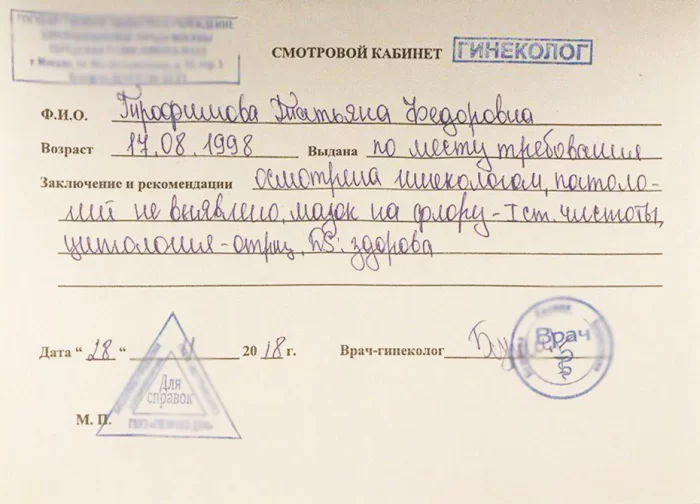 СМОТРОВОЙ КАБИНЕТ ГИНЕКОЛОГ
Ф.И.О. Трофимова Татьяна Федоровна
Возраст 17.08.1998 Выдана по месту требования
Заключение и рекомендации осмотрена гинекологом, патоло-
гий не выявлено, мазок на флору - I ст. чистоты,
цитология - отриц. DS: здорова
Дата “ 28 “ 2018 г. Врач-гинеколог
Врач
Для
справок
М. П.